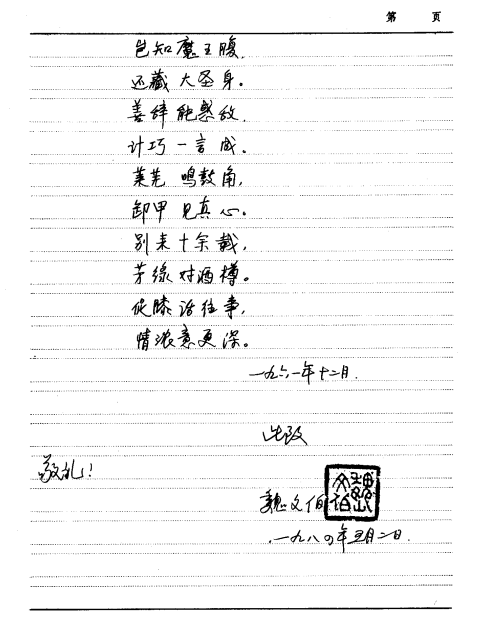 第 页
岂知魔王腹,
还藏大圣身。
姜辞能惑敌,
计巧一言成。
莱芜鸣鼓角,
卸甲见真心。
别来十余载,
芽绿对酒樽。
促膝话往事,
情浓意更深。
一九六一年十二月.
此致
敬礼!
魏文伯
魏文伯
一九八四年三月二日.